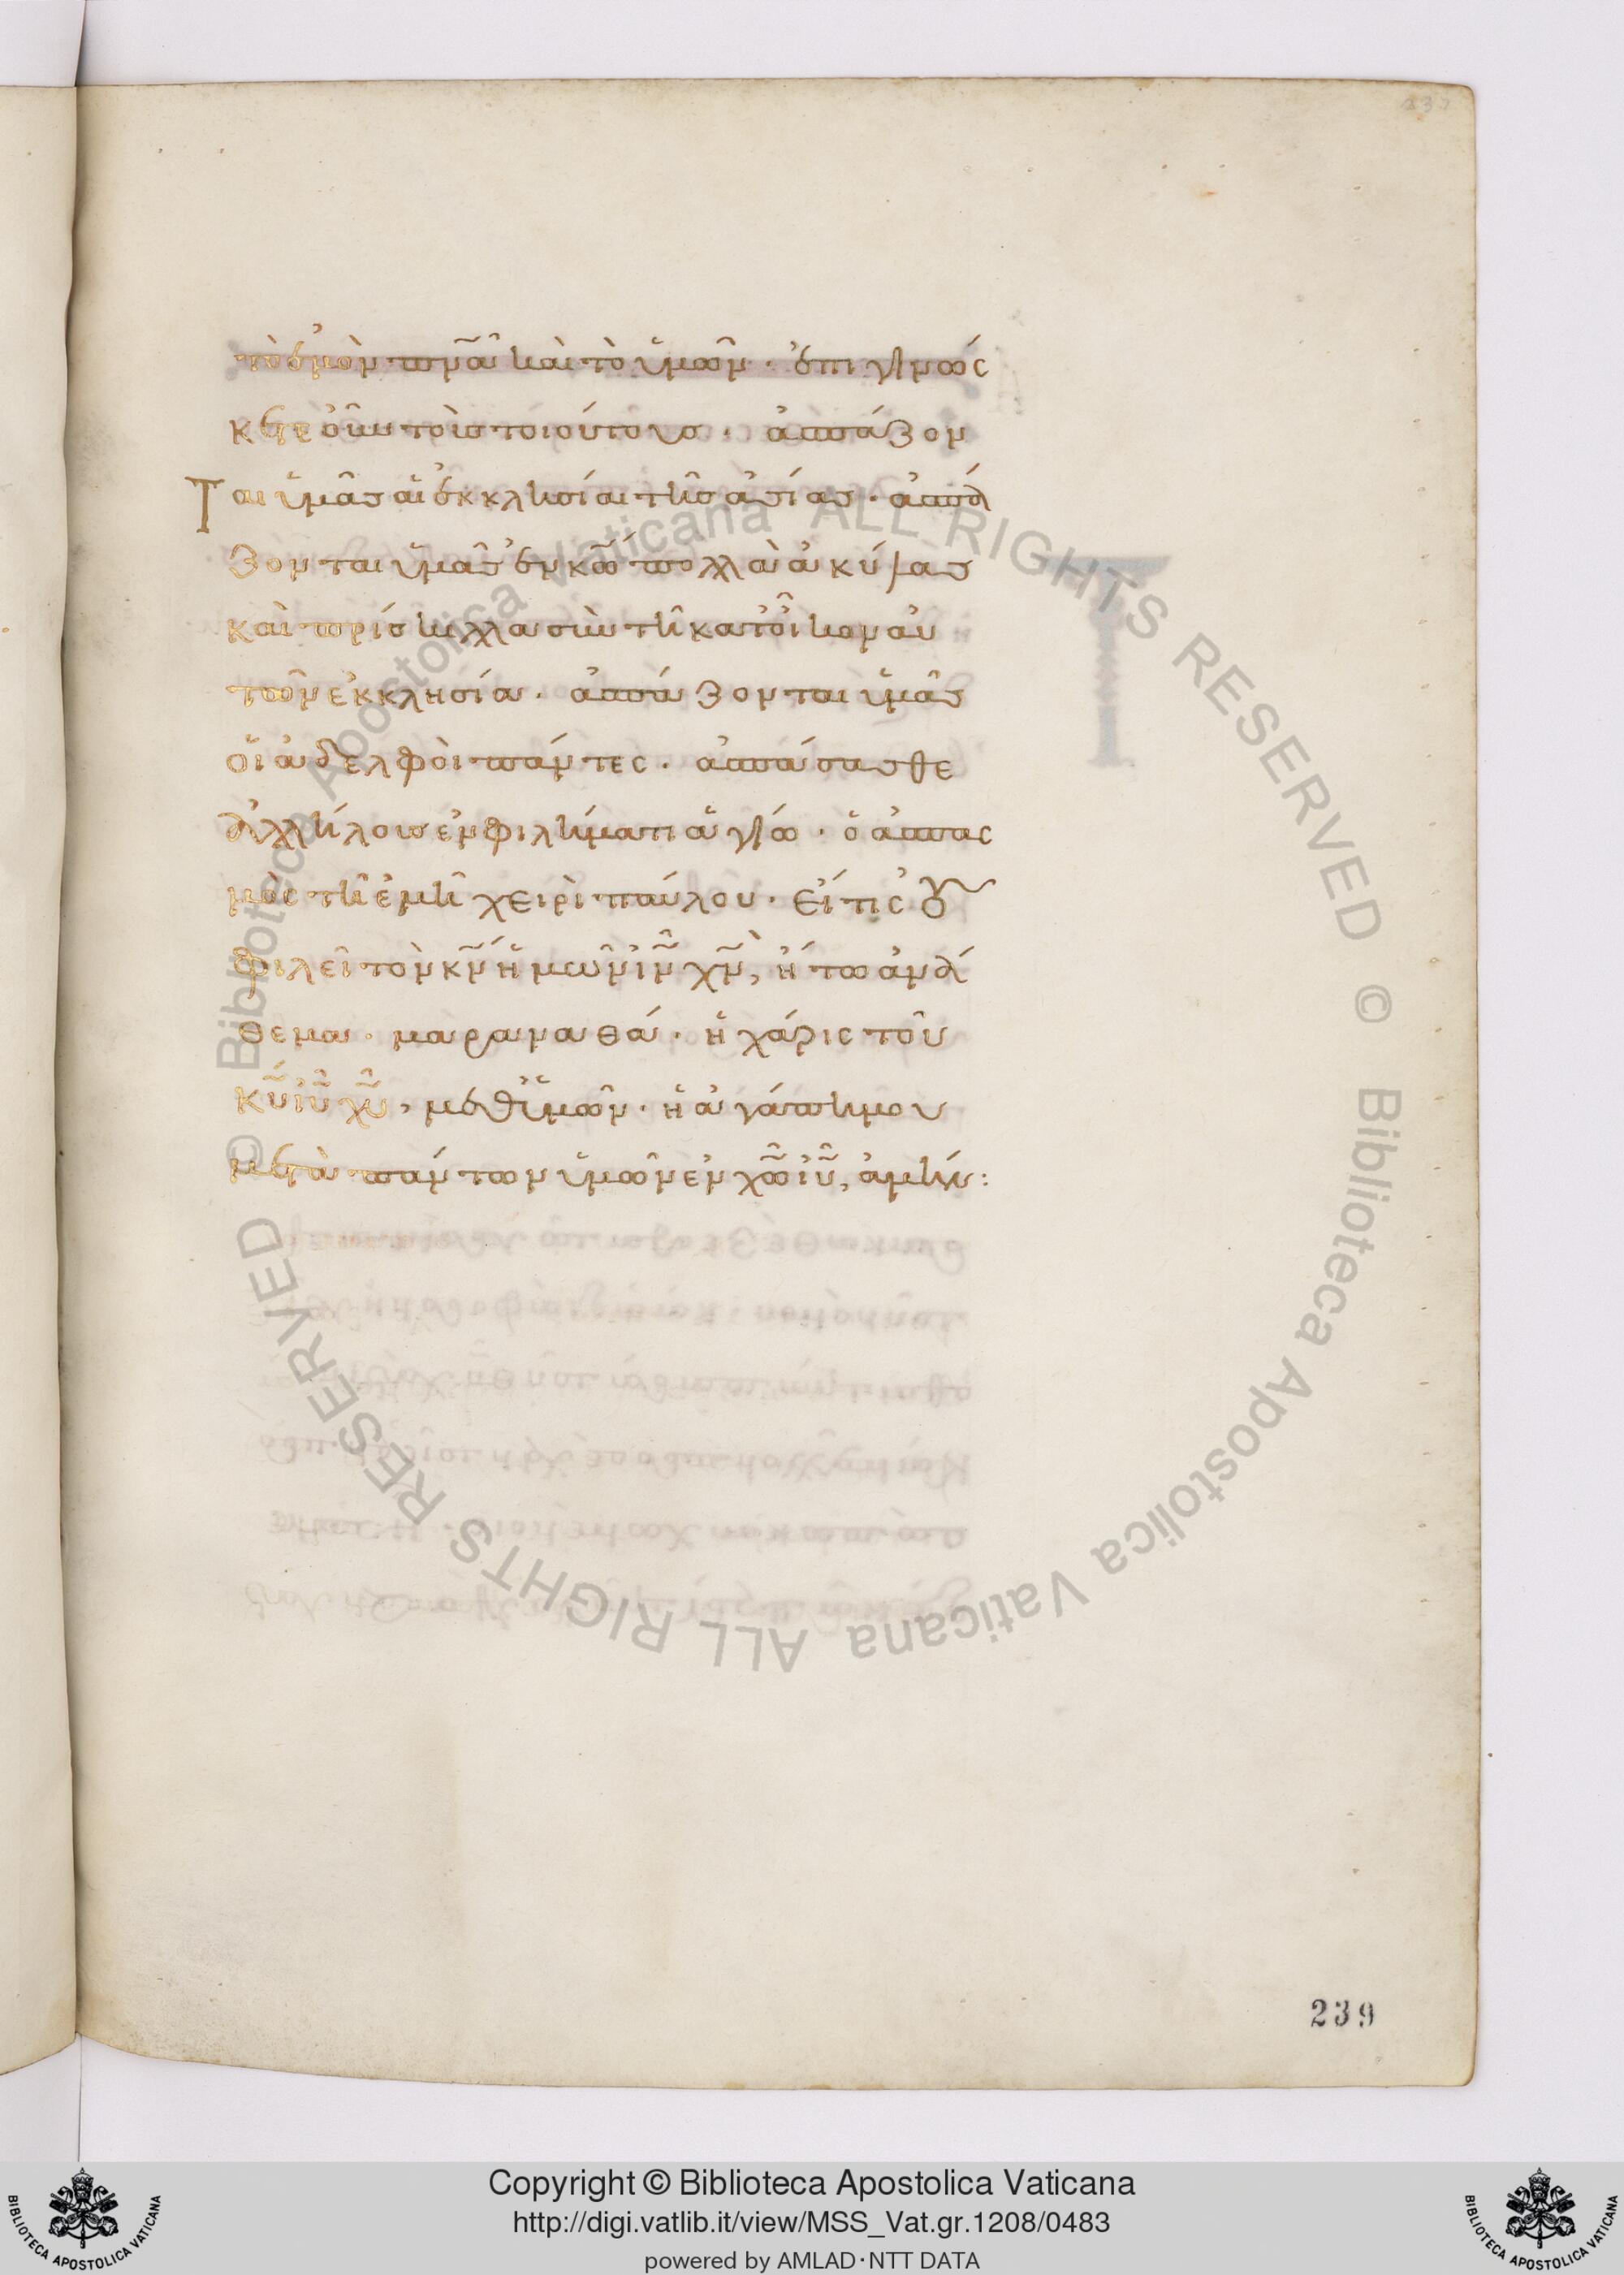 τὸ ἐμὸν πν̅α̅ καὶ τὸ ὑμῶν · ἐπιγινώς
κετε οὖν τοὺς τοιούτους · ἀσπάζον
Ται ὑμᾶς αἱ ἐκκλησίαι τῆς ἀσίας · ἀσπά
ζονται ὑμᾶς ἐν κω̅ πολλὰ ἀκύλας
καὶ πρίσκιλλα σὺν τῆ κατ οἶκον αὐ
τῶν ἐκκλησία · ἀσπάζονται ὑμᾶς
οἱ ἀδελφοὶ πάντες · ἀσπάσασθε
ἀλλήλους ἐν φιλήματι ἁγίω · ὁ ἀσπας
μὸς τῆ ἐμῆ χειρὶ παύλου · Εἴ τις οὐ
φιλεῖ τὸν κν̅ ἡμῶν ιν̅ χν̅, ἤτω ἀνά
θεμα · μαραναθά · ἡ χάρις τοῦ
κυ̅ ιυ̅ χυ̅, μεθ ὑμῶν · ἡ ἀγάπη μου
μετὰ πάντων ὑμῶν ἐν χω̅ ιυ̅, ἀμήν :
239
© Biblioteca Apostolica Vaticana ALL RIGHTS RESERVED
© Biblioteca Apostolica Vaticana ALL RIGHTS RESERVED
Copyright © Biblioteca Apostolica Vaticana
http://digi.vatlib.it/view/MSS_Vat.gr.1208/0483
powered by AMLAD·NTT DATA
BIBLIOTECA APOSTOLICA VATICANA
BIBLIOTECA APOSTOLICA VATICANA